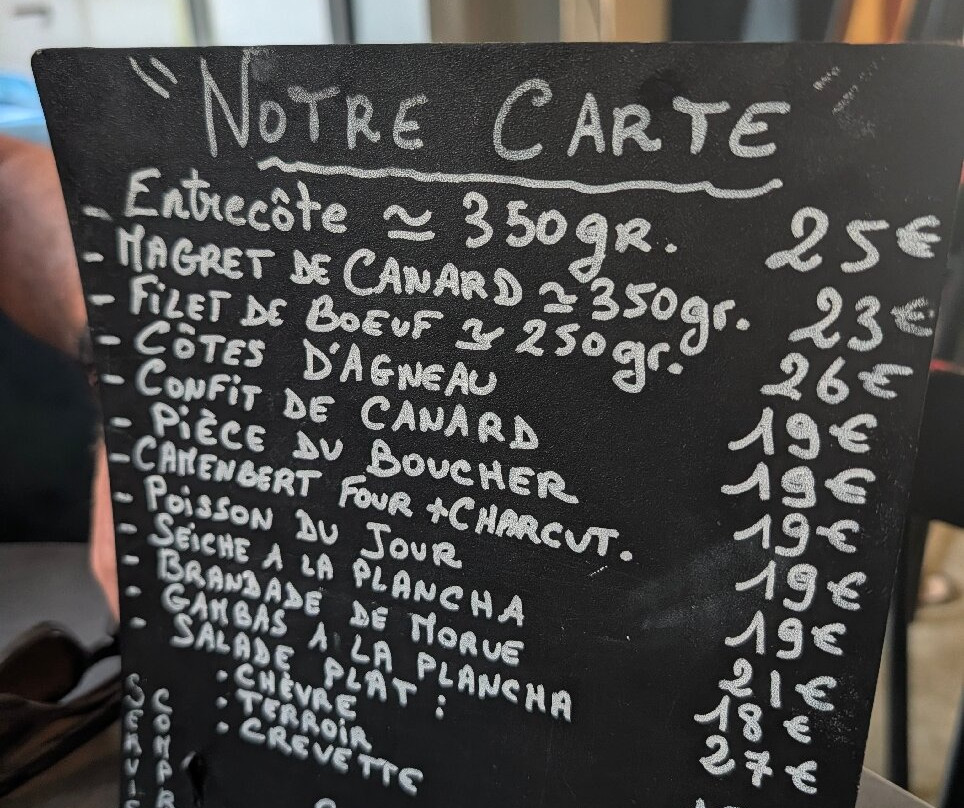 "NOTRE CARTE
- Entrecôte ≃ 350gR. 25€
- MAGRET DE CANARD ≃ 350gr. 23€
- FILET DE BOEUF ≃ 250gr. 26€
- CÔTES D'AGNEAU 19€
- CONFIT DE CANARD 19€
- PIÈCE DU BOUCHER 19€
- CAMENBERT FOUR + CHARCUT. 19€
- POISSON DU JOUR 19€
- SEICHE A LA PLANCHA 21€
- BRANDADE DE MORUE 18€
- GAMBAS A LA PLANCHA 27€
- SALADE PLAT :
: CHÈVRE
: TERROIR
: CREVETTE